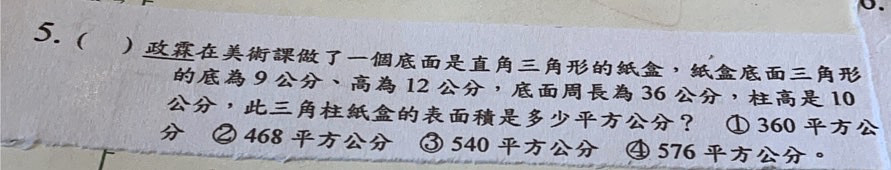 5. (　) 政霖在美術課做了一個底面是直角三角形的紙盒，紙盒底面三角形
的底為 9 公分、高為 12 公分，底面周長為 36 公分，柱高是 10
公分，此三角柱紙盒的表面積是多少平方公分？ ① 360 平方公
分 ② 468 平方公分 ③ 540 平方公分 ④ 576 平方公分。